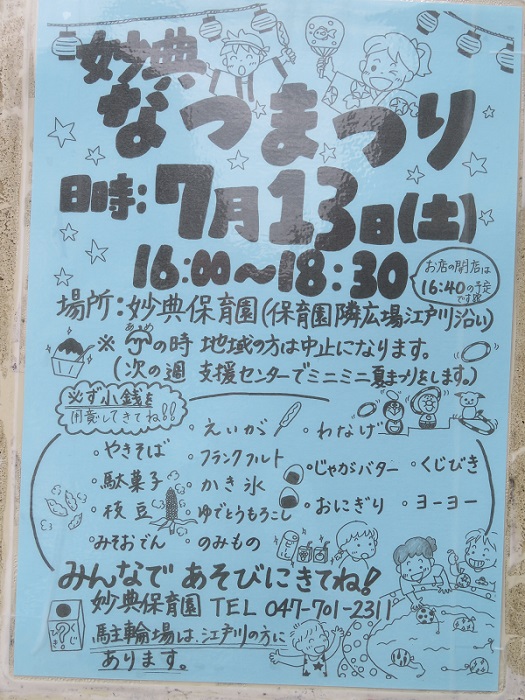 妙典
なつまつり
日時:7月13日(土)
16:00〜18:30
お店の開店は
16:40の予定
です
場所:妙典保育園(保育園隣広場江戸川沿い)
※あめの時 地域の方は中止になります。
(次の週 支援センターでミニミニ夏まつりをします。)
必ず小銭を
用意してきてね!!
・えいが
・わなげ
・やきそば
・フランクフルト
・じゃがバター
・くじびき
・駄菓子
・かき氷
・枝豆
・ゆでとうもろこし
・おにぎり
・ヨーヨー
・みそおでん
・のみもの
みんなで あそびにきてね!
妙典保育園 TEL 047-701-2311
駐輪場は、江戸川の方に
あります。
くじ
?